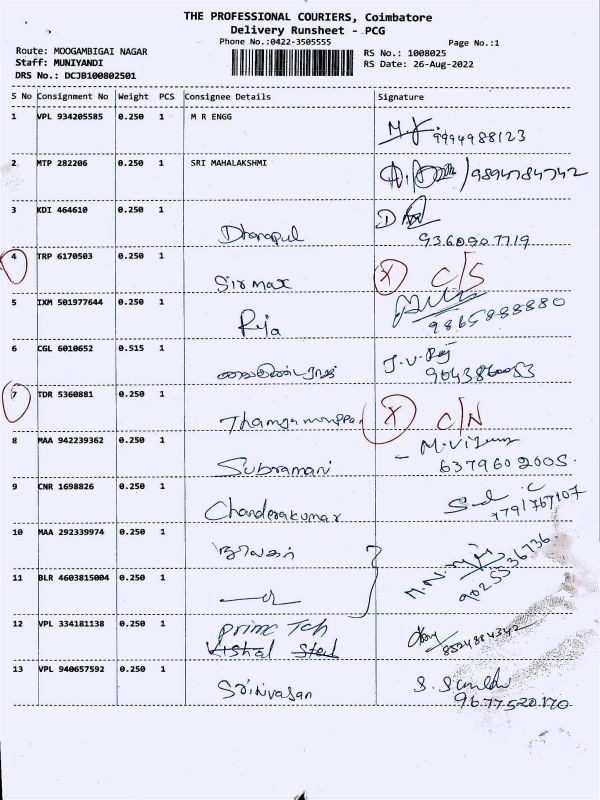 THE PROFESSIONAL COURIERS, Coimbatore
Delivery Runsheet - PCG
Phone No.:0422-3505555
Page No.:1
Route: MOOGAMBIGAI NAGAR
RS No.: 1008025
Staff: MUNIYANDI
RS Date: 26-Aug-2022
DRS No.: DCJB100802501
S No Consignment No Weight PCS Consignee Details Signature
1 VPL 934205585 0.250 1 M R ENGG
9994988123
2 MTP 282206 0.250 1 SRI MAHALAKSHMI
9894784742
3 KDI 464610 0.250 1
Dhanapal
9360907719
4 TRP 6170503 0.250 1
Sirmax X C/S
5 IXM 501977644 0.250 1
Raja 9865888880
6 CGL 6010652 0.515 1
J.V. Raj
7 TDR 5360881 0.250 1
X C/N
8 MAA 942239362 0.250 1
Subramani 6379602005.
9 CNR 1698826 0.250 1
Chanderakumar 9791767107
10 MAA 292339974 0.250 1
9025536736
11 BLR 4603815004 0.250 1
12 VPL 334181138 0.250 1 Prime Tch
Vishal Steel 8524884342
13 VPL 940657592 0.250 1
Srinivasan 9677520170